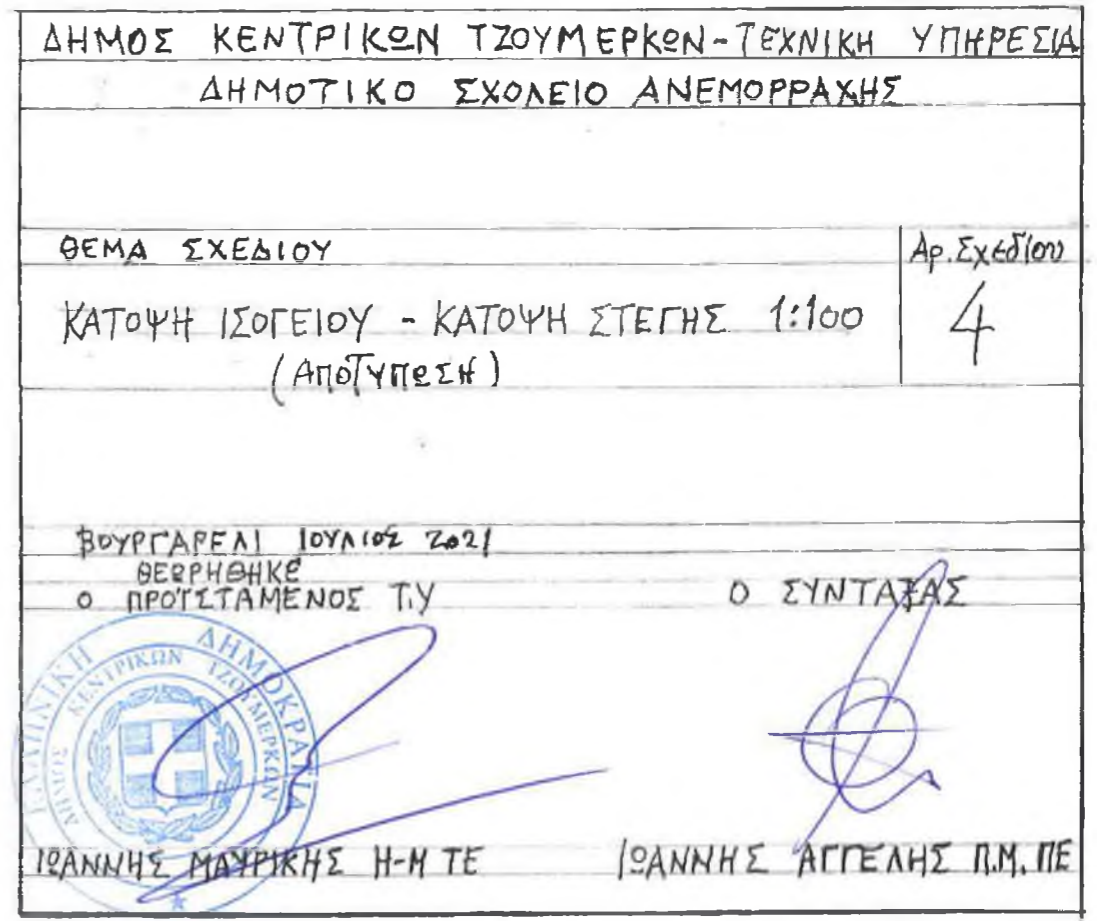 ΔΗΜΟΣ ΚΕΝΤΡΙΚΩΝ ΤΖΟΥΜΕΡΚΩΝ-ΤΕΧΝΙΚΗ ΥΠΗΡΕΣΙΑ
ΔΗΜΟΤΙΚΟ ΣΧΟΛΕΙΟ ΑΝΕΜΟΡΡΑΧΗΣ
ΘΕΜΑ ΣΧΕΔΙΟΥ
Αρ. Σχεδίου
ΚΑΤΟΨΗ ΙΣΟΓΕΙΟΥ - ΚΑΤΟΨΗ ΣΤΕΓΗΣ 1:100
4
(ΑΠΟΤΥΠΩΣΗ)
ΒΟΥΡΓΑΡΕΛΙ ΙΟΥΛΙΟΣ 2021
ΘΕΩΡΗΘΗΚΕ
Ο ΠΡΟΪΣΤΑΜΕΝΟΣ Τ.Υ
Ο ΣΥΝΤΑΞΑΣ
ΕΛΛΗΝΙΚΗ ΔΗΜΟΚΡΑΤΙΑ
ΔΗΜΟΣ ΚΕΝΤΡΙΚΩΝ ΤΖΟΥΜΕΡΚΩΝ
ΙΩΑΝΝΗΣ ΜΑΥΡΙΚΗΣ Η-Μ ΤΕ
ΙΩΑΝΝΗΣ ΑΓΓΕΛΗΣ Π.Μ. ΠΕ